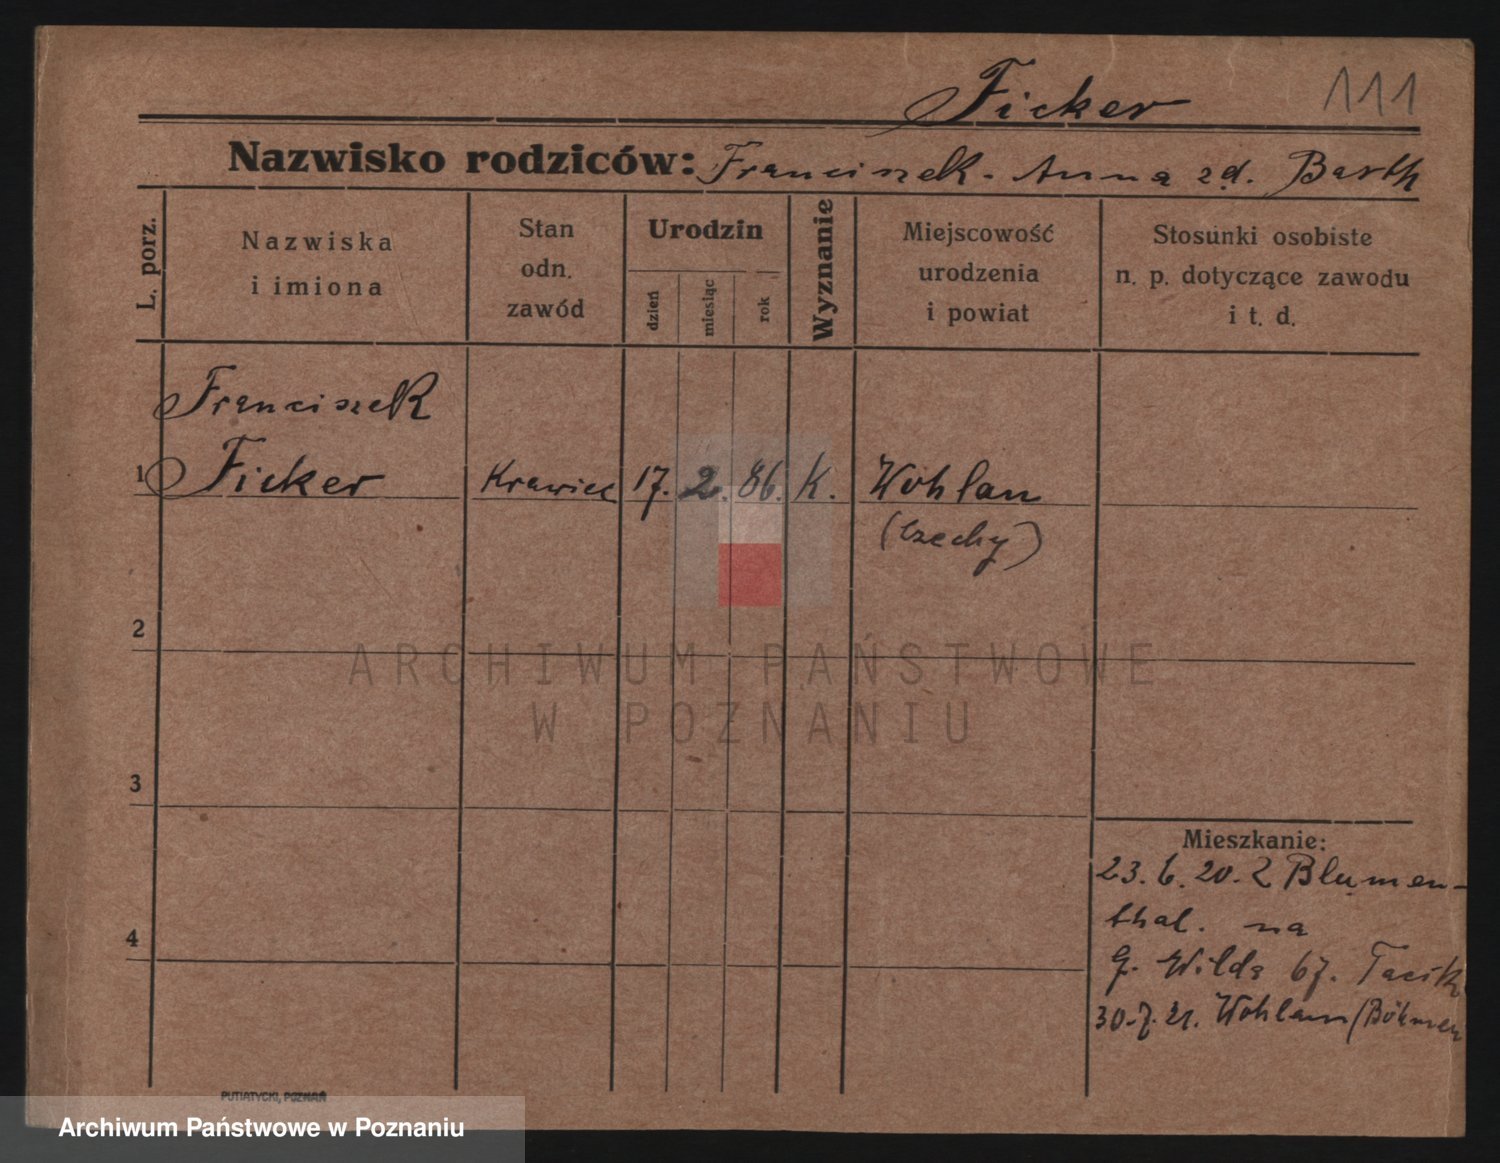 Ficker
111
Nazwisko rodziców: Franciszek - Anna zd. Barth
L. porz.
Nazwiska
i imiona
Stan
odn.
zawód
Urodzin
dzień
miesiąc
rok
Wyznanie
Miejscowość
urodzenia
i powiat
Stosunki osobiste
n. p. dotyczące zawodu
i t. d.
Franciszek
1 Ficker Krawiec 17. 2. 86. K. Wohlan
(Czechy)
2
ARCHIWUM PAŃSTWOWE
W POZNANIU
3
Mieszkanie:
23.6.20. z Blumen-
thal. na
4
G. Wilda 67. Tacik
30.7.21. Wohlan (Böhmen
PUTIATYCKI, POZNAŃ
Archiwum Państwowe w Poznaniu